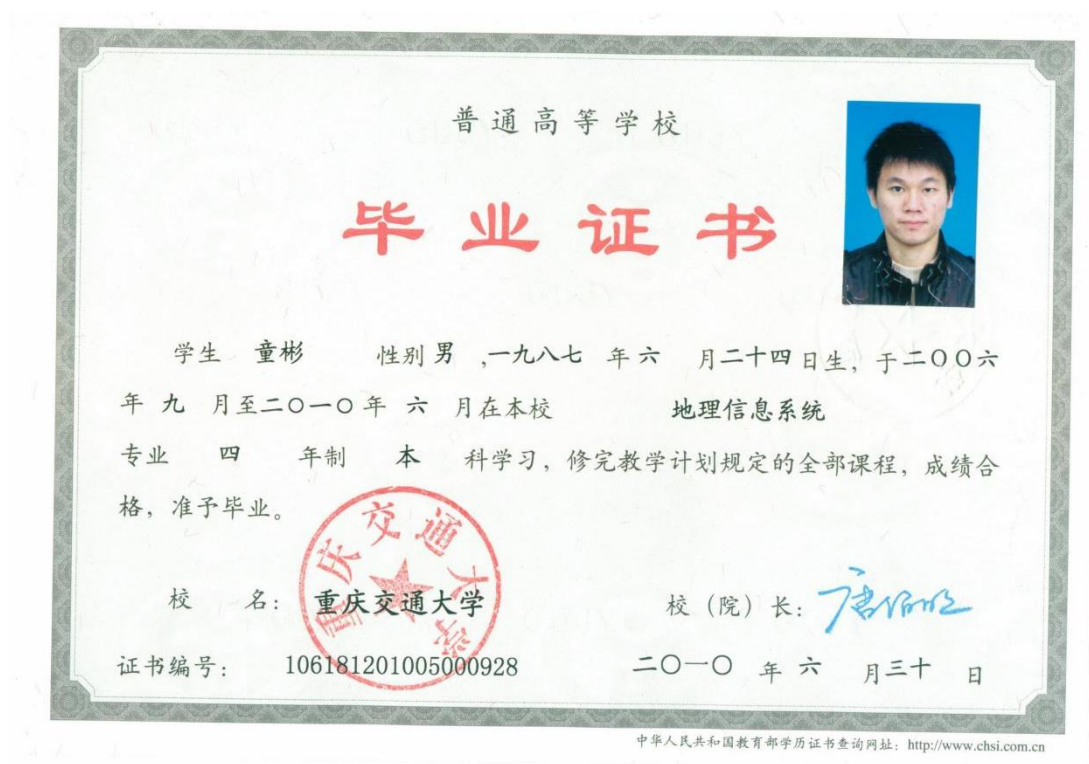 普通高等学校
毕业证书
学生 童彬 性别 男 ,一九八七 年 六 月 二十四 日生，于 二〇〇六
年 九 月至 二〇一〇 年 六 月在本校 地理信息系统
专业 四 年制 本 科学习，修完教学计划规定的全部课程，成绩合
格，准予毕业。
重庆交通大学
校 名： 重庆交通大学 校（院）长：
证书编号： 106181201005000928 二〇一〇 年 六 月 三十 日
中华人民共和国教育部学历证书查询网址：http://www.chsi.com.cn